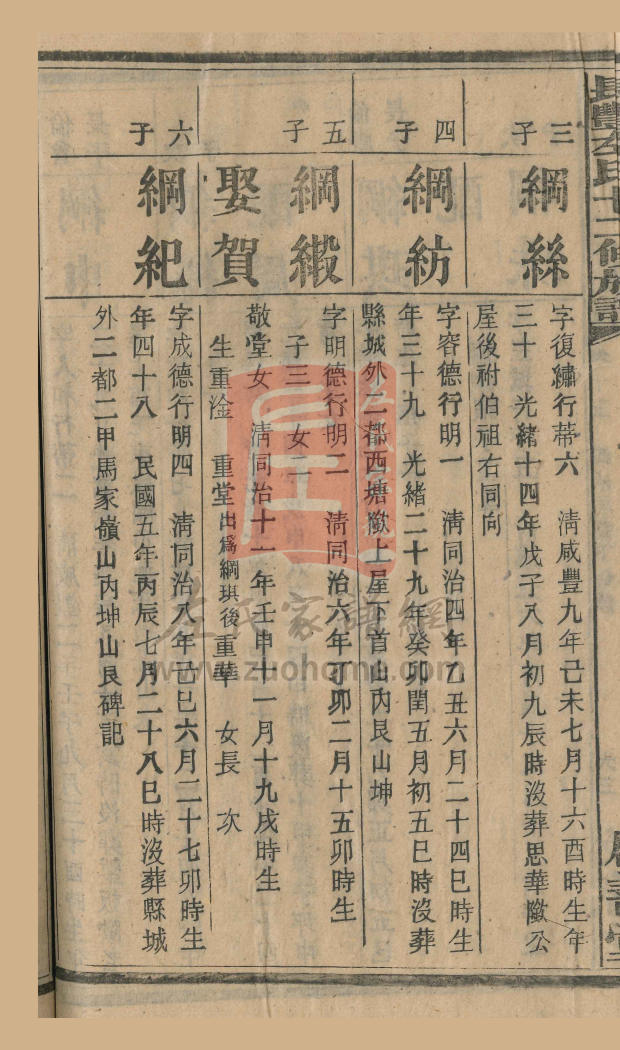 長豐左氏十二修族譜
三子
綱絲
字復繡行蒂六 清咸豐九年己未七月十六酉時生年
三十 光緒十四年戊子八月初九辰時沒葬思華㘰公
屋後祔伯祖右同向
四子
綱紡
字容德行明一 清同治四年乙丑六月二十四巳時生
年三十九 光緒二十九年癸卯閏五月初五巳時沒葬
縣城外二都西塘㘰上屋下首山內艮山坤
五子
綱緞
字明德行明二 清同治六年丁卯二月十五卯時生
子三 女二
娶賀
敬堂女 清同治十一年壬申十一月十九戌時生
生重淦 重堂出為綱琪後重華 女長 次
六子
綱紀
字成德行明四 清同治八年己巳六月二十七卯時生
年四十八 民國五年丙辰七月二十八巳時沒葬縣城
外二都二甲馬家嶺山內坤山艮碑記
左氏家譜網
www.zuohome.com